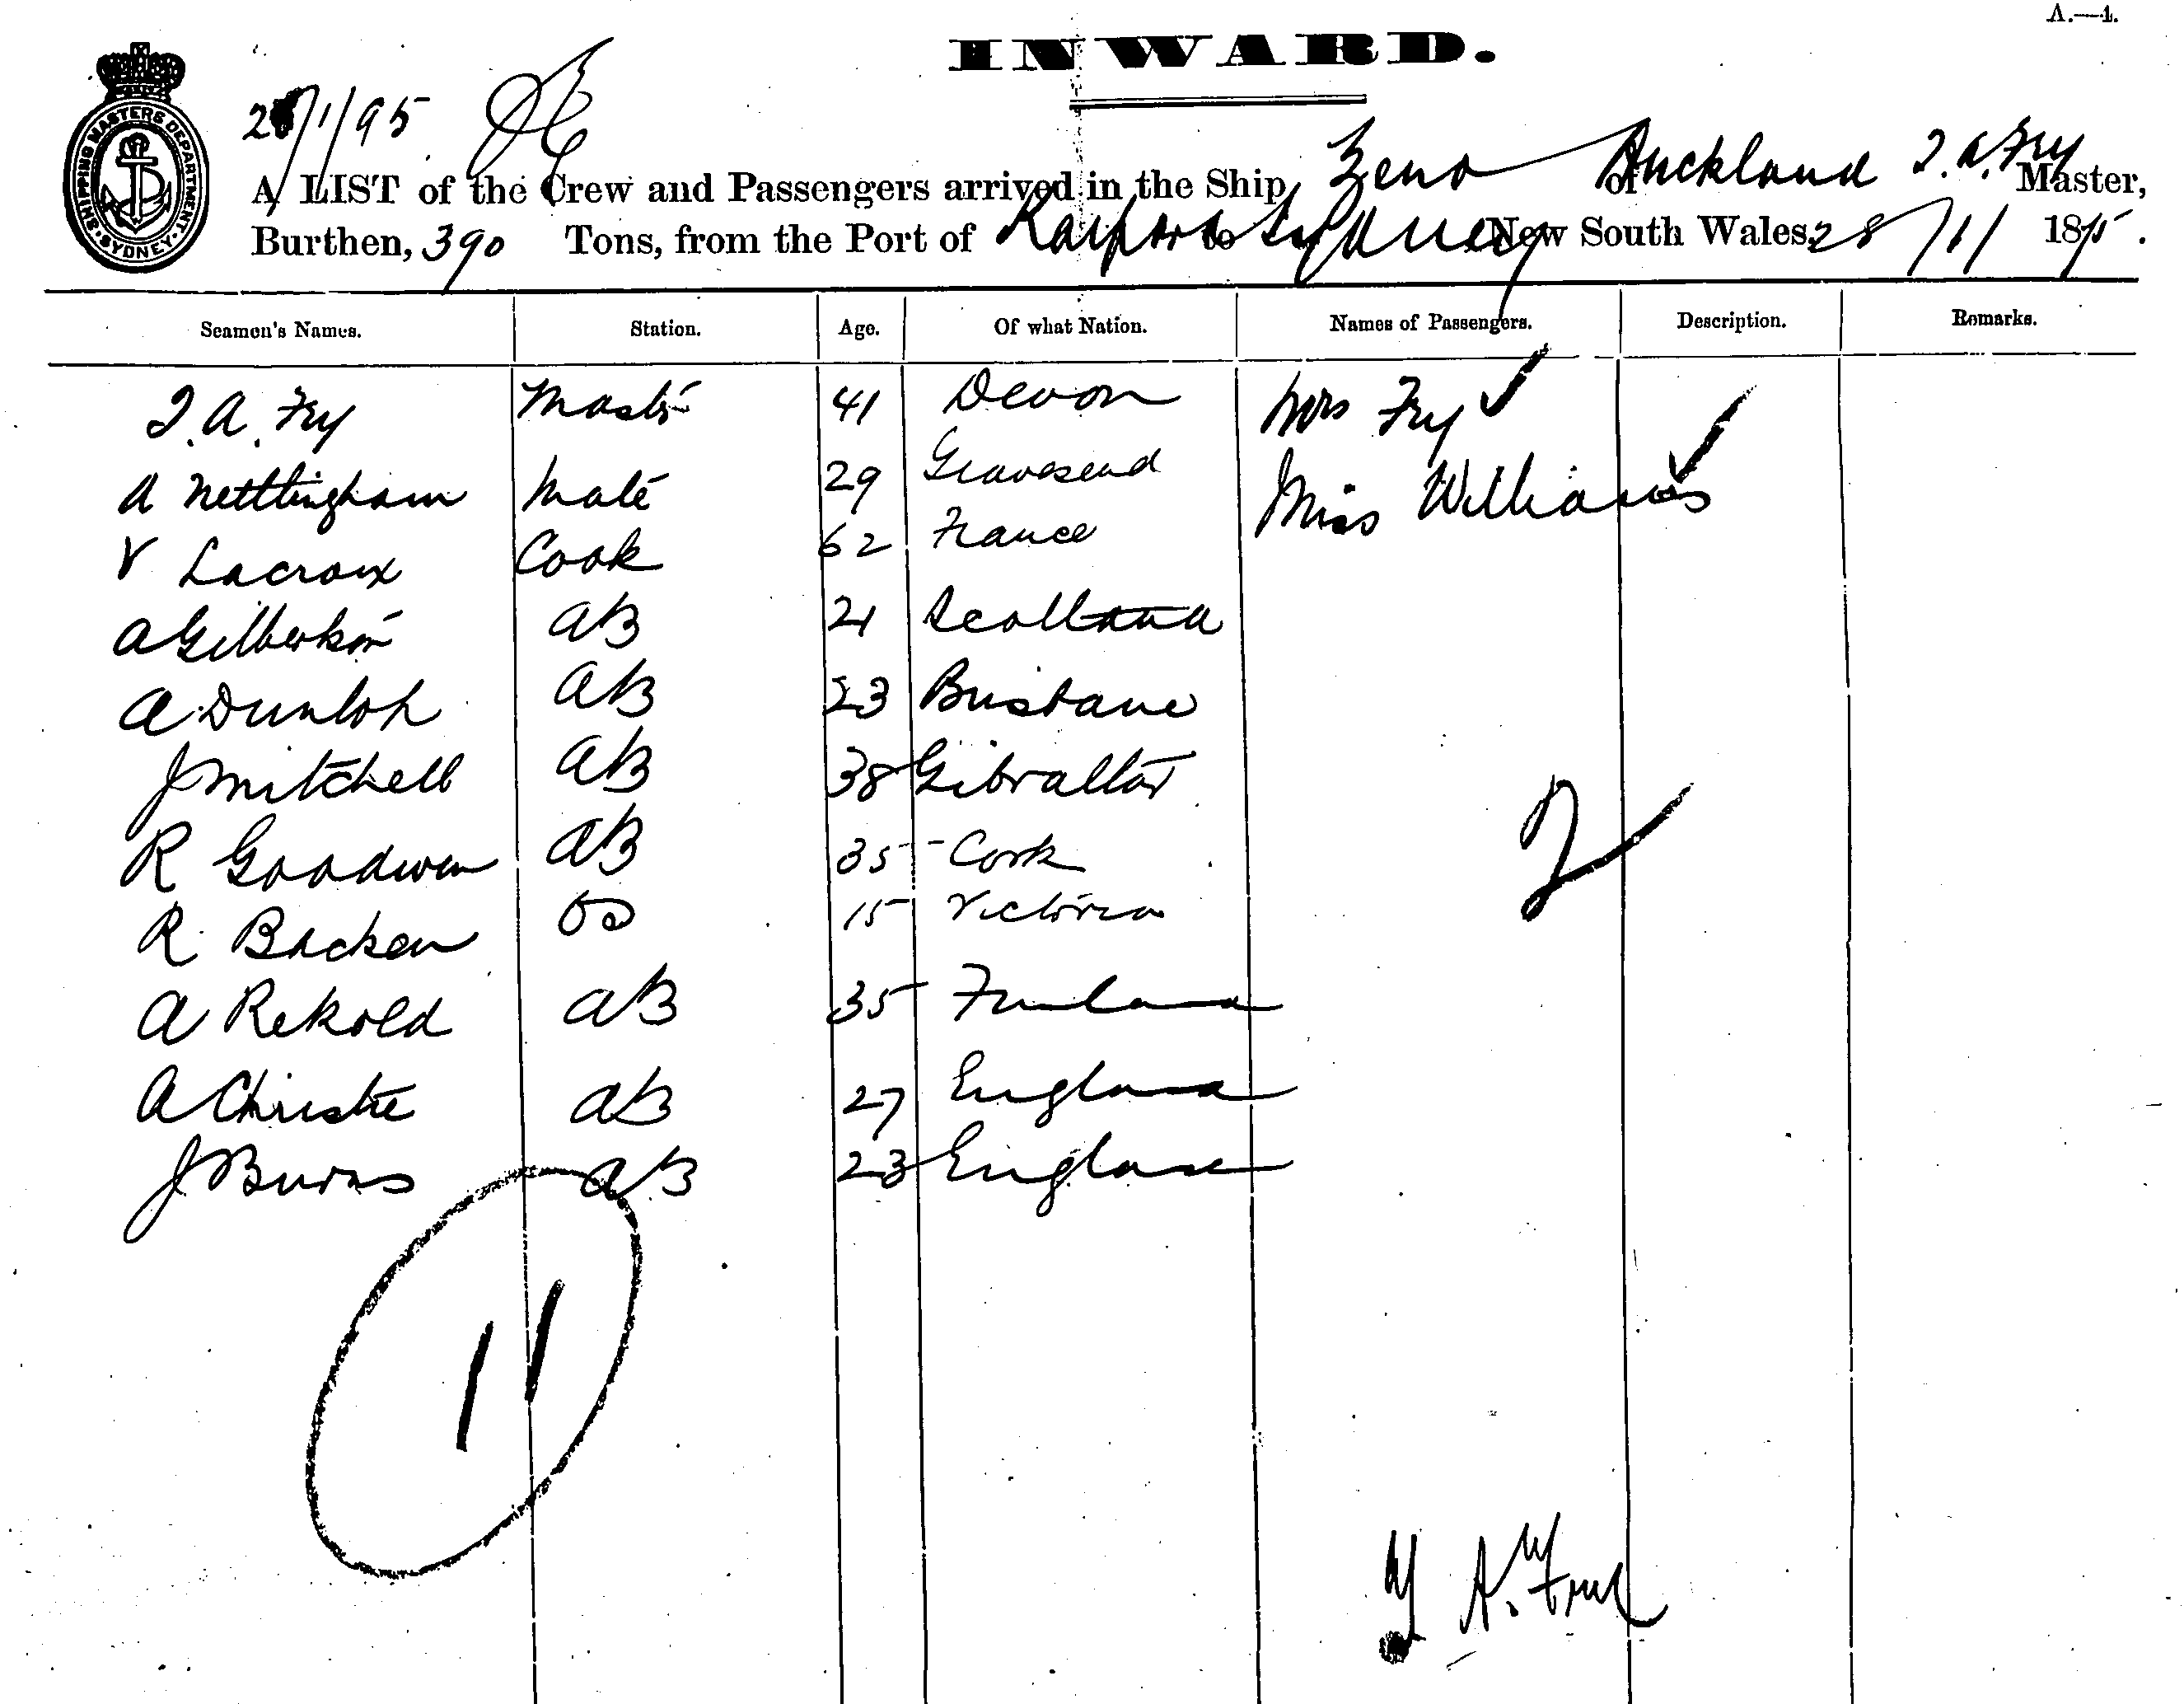 A.—4.
INWARD.
SHIPPING MASTERS DEPARTMENT. SYDNEY
/1/95
A LIST of the Crew and Passengers arrived in the Ship, Zeno of Auckland T. A. Fry Master,
Burthen, 390 Tons, from the Port of to Sydney New South Wales, 28/1/ 1895.
Seamen's Names. Station. Age. Of what Nation. Names of Passengers. Description. Remarks.
T. A. Fry Master 41 Devon Mrs Fry
A Nettlingham Mate 29 Gravesend Miss Williams
V Lacroix Cook 62 France
A Gilbertson AB 21 Scotland
A Dunlop AB 23 Brisbane
J Mitchell AB 38 Gibraltar
R Goodwin AB 35 Cork
R Backen OS 15 Victoria
A Rekold AB 35 Finland
A Christie AB 27 England
J Burns AB 23 England
2
11